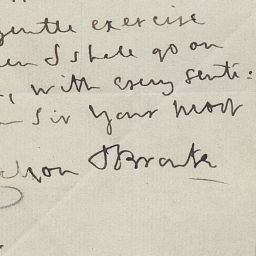 gentle exercise
en I shall go on
, with every senti:
Sir Your most
PBronte